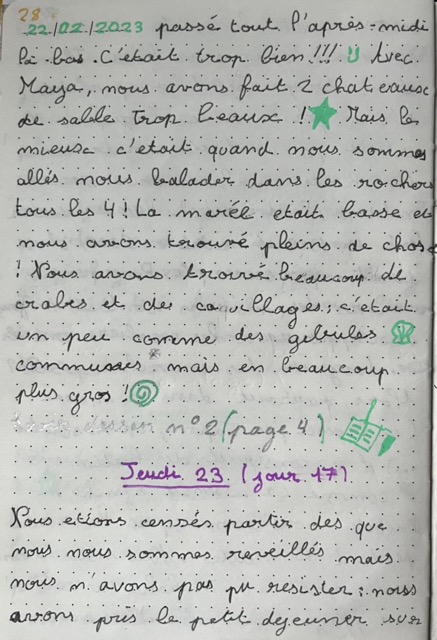 28
22/02/2023 passé tout l'après-midi
là bas. C'était trop bien !!! Avec
Maya, nous avons fait 2 chateaux
de sable trop beaux ! Mais le
mieux c'était quand nous sommes
allés nous balader dans les rochers
tous les 4 ! La marél etait basse et
nous avons trouvé pleins de chose
! Nous avons trouvé beaucoup de
crabes et des coquillages ; c'était
un peu comme des gibules
communes mais en beaucoup
plus gros !
dessin n°2 (page 4)
Jeudi 23 (jour 17)
Nous etions censés partir des que
nous nous sommes reveillés mais
nous n'avons pas pu resister : nous
avons pris le petit dejeuner sur